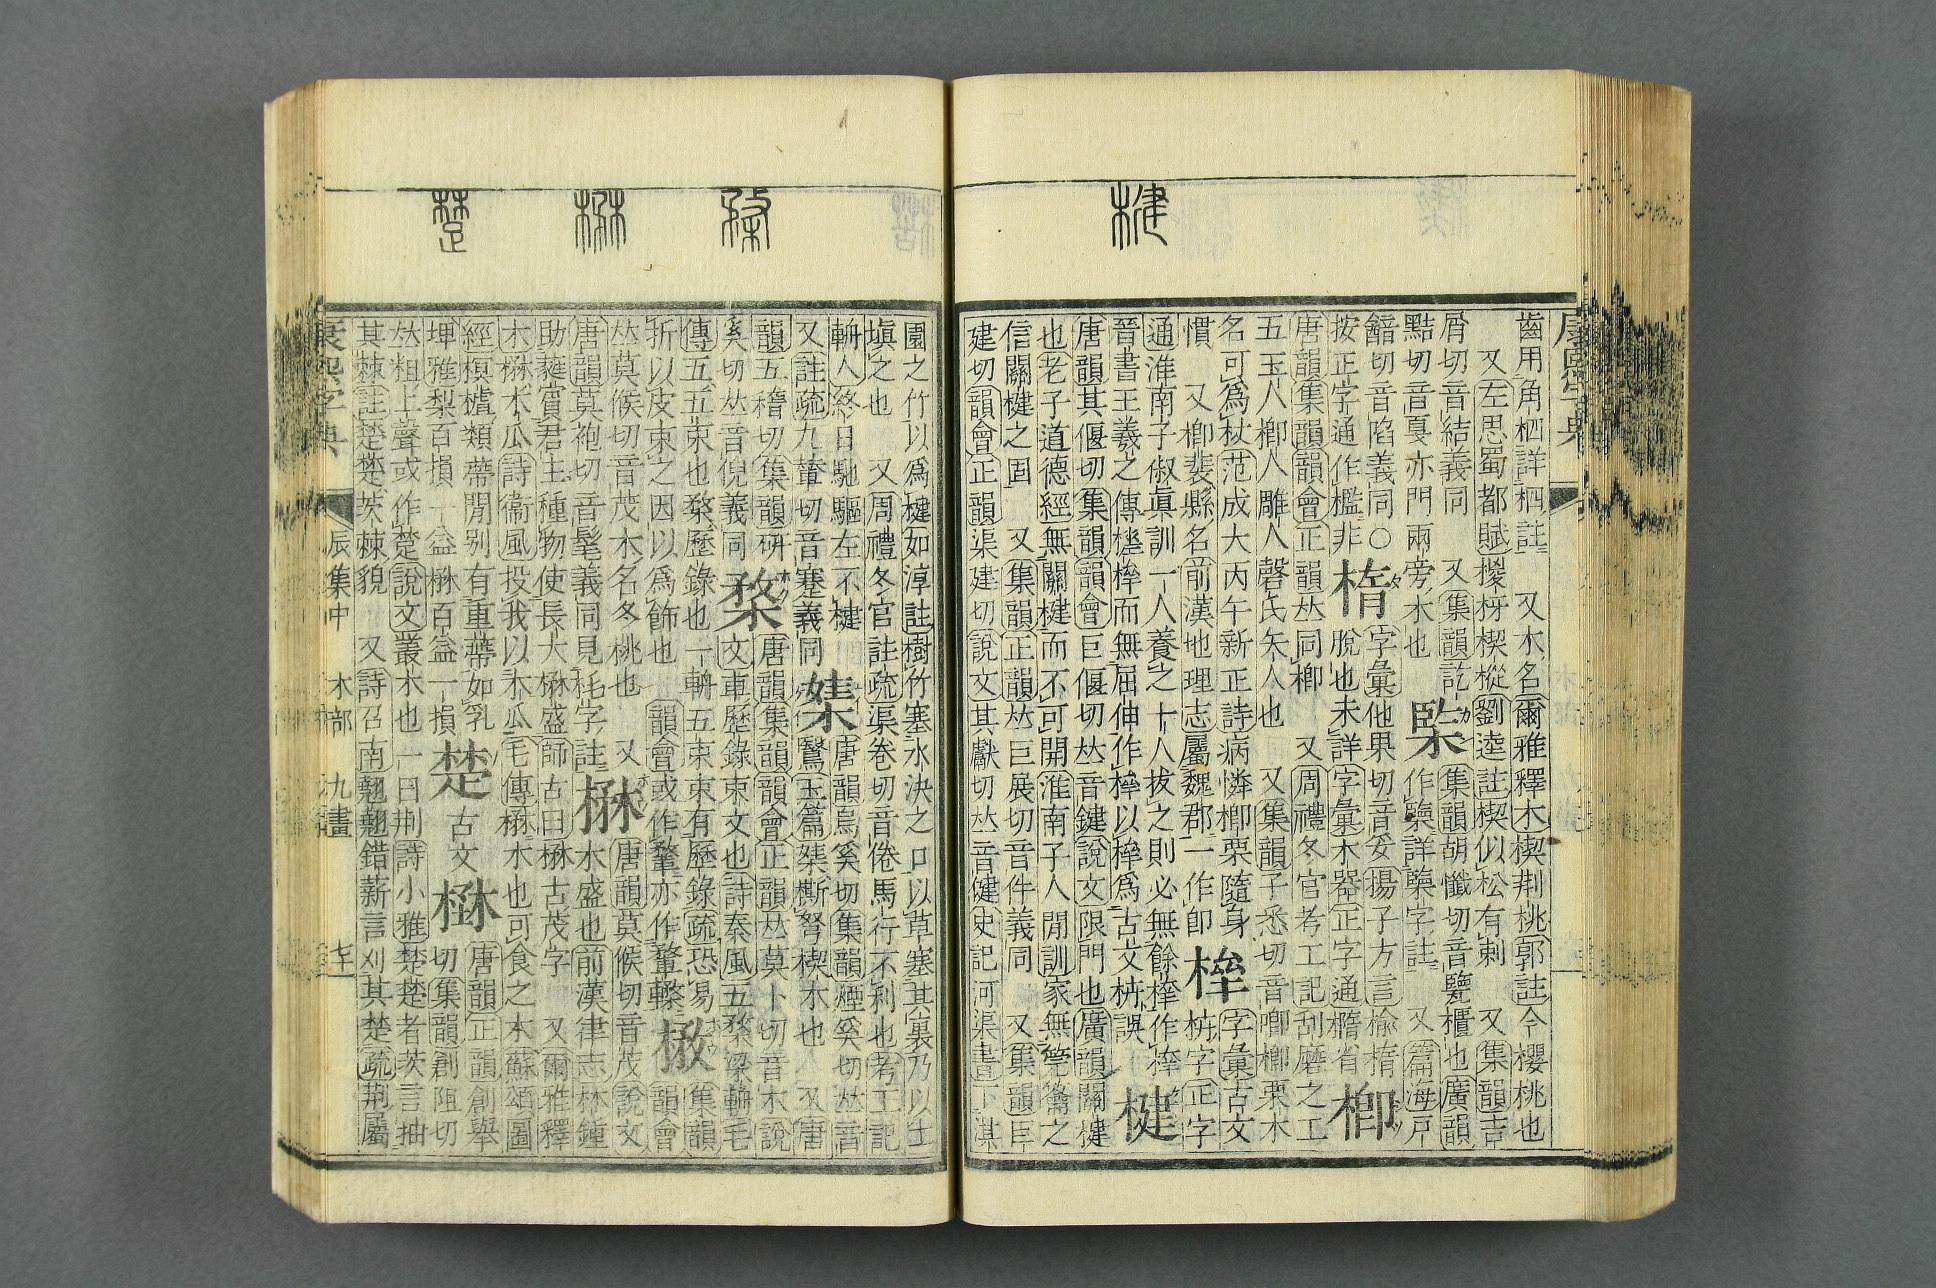 康熙字典
齒用角柶詳柶註 又木名爾雅釋木楔荆桃郭註今櫻桃也
又左思蜀都賦㮨枒楔樅劉逵註楔似松有刺 又集韻吉
屑切音結義同 又集韻訖
黠切音戛亦門兩旁木也
集韻胡懺切音覽櫃也廣韻
作㯺詳㯺字註 又篇海戸
䤘切音陷義同
按正字通作檻非○楕
字彙他果切音妥揚子方言楡楕
脫也未詳字彙木器正字通橢省
楖
唐韻集韻韻會正韻𠀤同楖 又周禮冬官考工記刮磨之工
五玉人楖人雕人磬氏矢人也 又集韻子悉切音唧楖栗木
名可爲杖范成大丙午新正詩病憐楖栗隨身
慣 又楖裴縣名前漢地理志屬魏郡一作卽
字彙古文
栟字正字
通淮南子俶眞訓一人養之十人拔之則必無餘
晉書王羲之傳
而無屈伸作
以
爲古文栟誤
楗
唐韻其偃切集韻韻會巨偃切𠀤音鍵說文限門也廣韻關楗
也老子道德經無關楗而不可開淮南子人閒訓家無筦籥之
信關楗之固 又集韻正韻𠀤巨展切音件義同 又集韻巨
建切韻會正韻渠建切說文其獻切𠀤音健史記河渠書下淇
園之竹以爲楗如淳註樹竹塞水決之口以草塞其裏乃以土
塡之也 又周禮冬官註疏渠卷切音倦馬行不利也考工記
輈人終日馳驅左不楗
又註疏九輦切音蹇義同
唐韻烏奚切集韻煙奚切𠀤音
鷖玉篇
楔木也 又唐
韻五稽切集韻研
奚切𠀤音倪義同
楘
唐韻集韻韻會正韻𠀤莫卜切音木說
文車歷錄束文也詩秦風五楘梁輈毛
傳五五束也楘歷錄也一輈五束束有歷錄疏恐易
折以皮束之因以爲飾也
韻會或作鞪亦作鞪𩎟
楙
集韻
韻會
𠀤莫候切音茂木名冬桃也 又
唐韻莫候切音茂說文
木盛也前漢律志林鍾
唐韻莫袍切音髦義同見枆字註
助蕤賓君主種物使長大楙盛師古曰楙古茂字 又爾雅釋
木楙木瓜詩衞風投我以木瓜毛傳楙木也可食之木蘇頌圖
經榠樝類蔕閒别有重蔕如乳
埤雅梨百損一益楙百益一損
楚
古文
唐韻正韻創舉
切集韻創阻切
𠀤粗上聲或作楚說文叢木也一曰荆詩小雅楚楚者茨言抽
其棘註楚楚茨棘貌 又詩召南翹翹錯薪言刈其楚疏荆屬
康熙字典 辰集中 木部 九畫